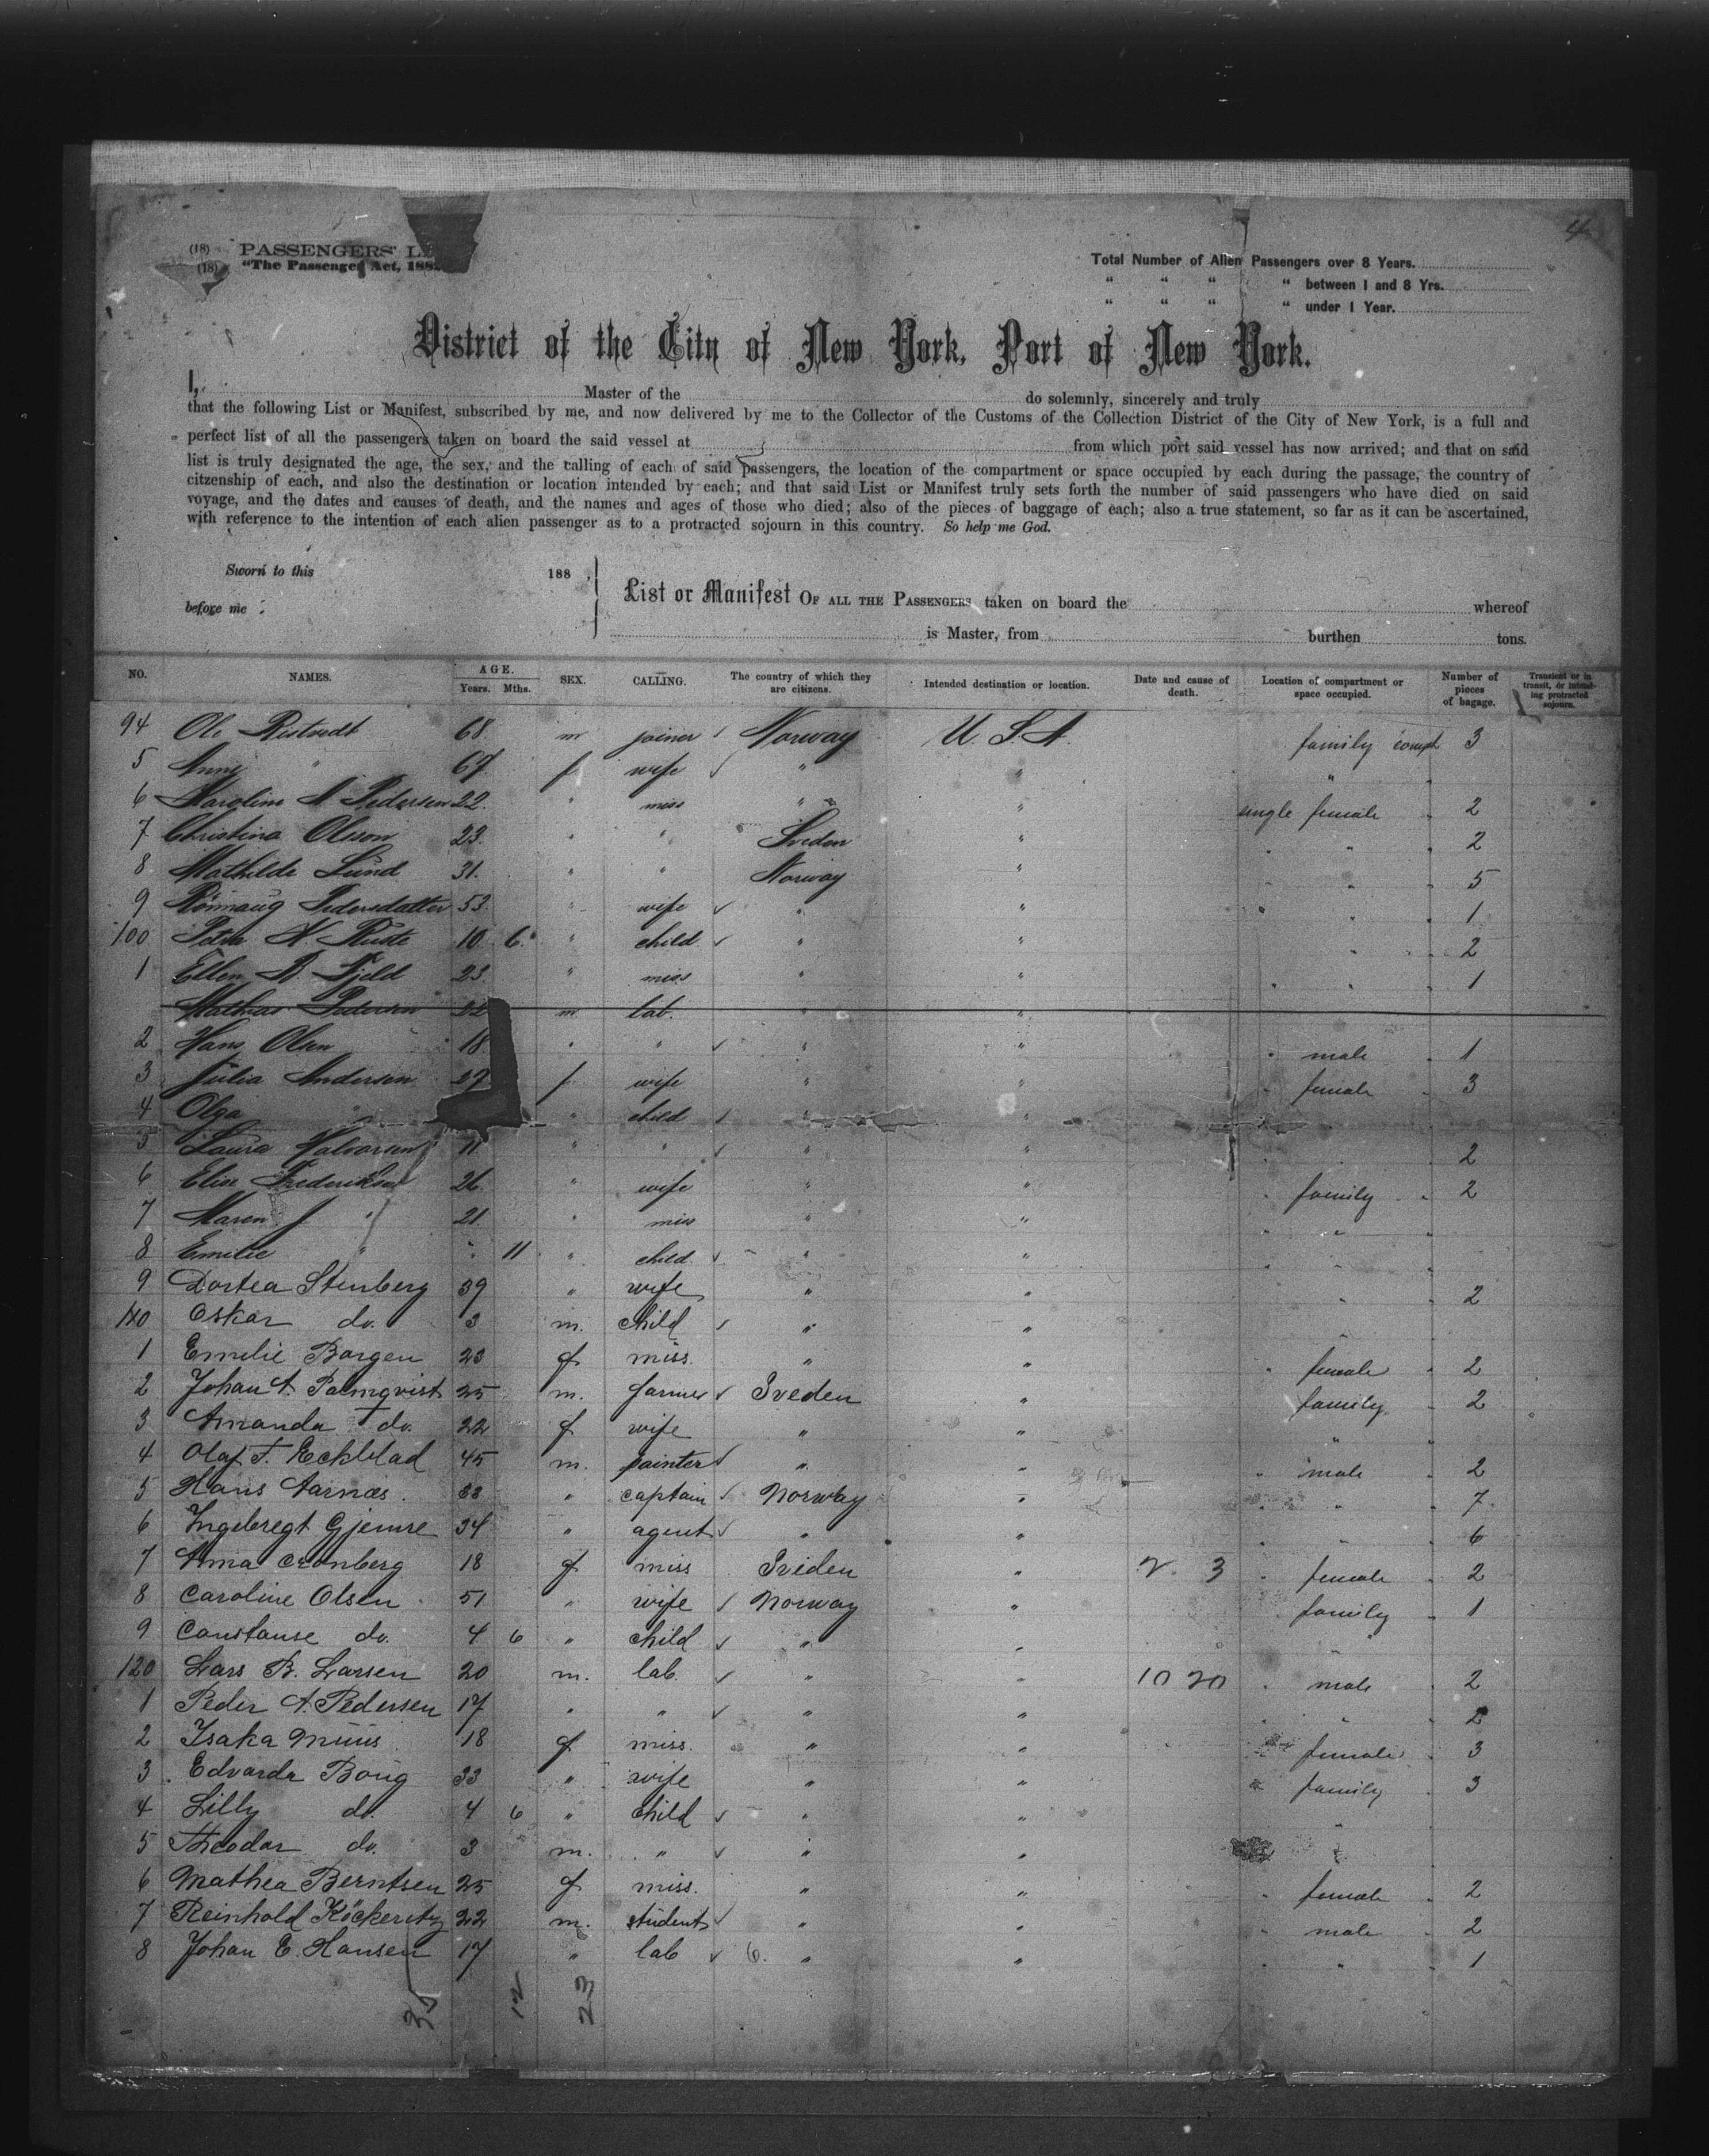 4
(18) PASSENGERS' L
(18) "The Passenger Act, 188
Total Number of Alien Passengers over 8 Years.
" " " " between 1 and 8 Yrs.
" " " " under 1 Year.
District of the City of New York, Port of New York.
I, Master of the do solemnly, sincerely and truly
that the following List or Manifest, subscribed by me, and now delivered by me to the Collector of the Customs of the Collection District of the City of New York, is a full and
perfect list of all the passengers taken on board the said vessel at from which port said vessel has now arrived; and that on said
list is truly designated the age, the sex, and the calling of each of said passengers, the location of the compartment or space occupied by each during the passage, the country of
citzenship of each, and also the destination or location intended by each; and that said List or Manifest truly sets forth the number of said passengers who have died on said
voyage, and the dates and causes of death, and the names and ages of those who died; also of the pieces of baggage of each; also a true statement, so far as it can be ascertained,
with reference to the intention of each alien passenger as to a protracted sojourn in this country. So help me God.
Sworn to this 188 ,
before me
List or Manifest OF ALL THE PASSENGERS taken on board the whereof
is Master, from burthen tons.
NO. NAMES. AGE. Years. Mths. SEX. CALLING. The country of which they are citizens. Intended destination or location. Date and cause of death. Location of compartment or space occupied. Number of pieces of bagage. Transient or in transit, or intending protracted sojourn.
94 Ole Ristvedt 68 m joiner Norway U.S.A. family compt 3
5 Anne " 67 f wife " " "
6 Karoline A. Pedersen 22 " miss " " single female " 2
7 Christina Olsson 23 " " Sveden " " " " 2
8 Mathilde Lund 31. " " Norway " " " " 5
9 Rönnaug Pedersdatter 53 " wife " " " " 1
100 Petra N. Ruste 10 6 " child " " " " 2
1 Ellen R. Fjeld 23 " miss " " " " " 1
Mathias Pedersen 22 m lab. " "
2 Hans Olsen 18 " " " " " male " 1
3 Julia Andersen 27 f wife " " " female " 3
4 Olga " " child " "
5 Laura Halvorsen 11 " " " " " " 2
6 Elise Frederiksen 26 " wife " " " family " 2
7 Maren J " 21 " miss " " " " "
8 Emilie " " 11 " child " " " " "
9 Dortea Stenberg 39 " wife " " " " 2
110 Oskar do. 3 m. child " "
1 Emelie Borgen 23 f miss. " " " female " 2
2 Johan A. Palmqvist 25 m. farmer Sveden " family " 2
3 Amanda do. 22 f wife " " " "
4 Olaf F. Eckblad 45 m. painter " " " male " 2
5 Hans Aarnæs 33 " captain Norway " " " 7
6 Ingebregt Gjemre 34 " agent " " " " 6
7 Anna Cronberg 18 f miss Sveden " 2 3 " female " 2
8 Caroline Olsen 51 " wife Norway " family " 1
9 Constanse do. 4 6 " child " "
120 Lars B. Larsen 20 m. lab. " " 10 20 " male " 2
1 Peder A. Pedersen 17 " " " " " " " 2
2 Isaka Muus 18 f miss. " " female " 3
3 Edvarda Boug 33 " wife " " " family " 3
4 Lilly do. 4 6 " child " " "
5 Theodor do. 3 m. " " " "
6 Mathea Berntsen 25 f miss. " " " female " 2
7 Reinhold Köckeritz 22 m. student " " " male " 2
8 Johan E. Hansen 17 " lab 6. " " " " " 1
35
12
23